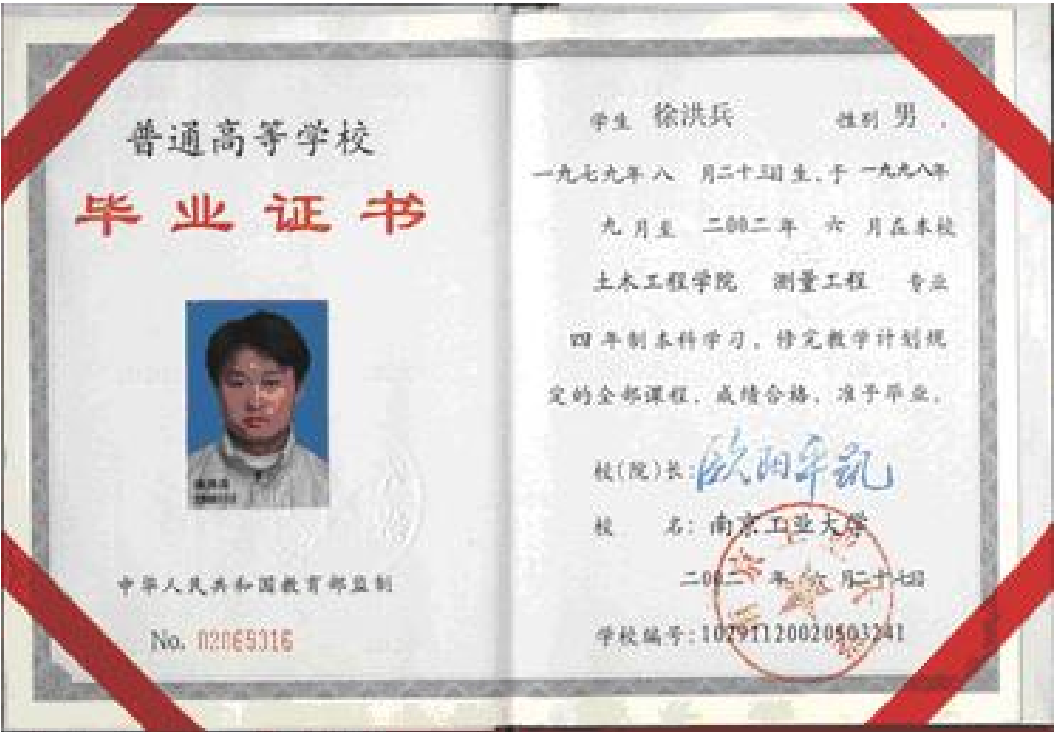 普通高等学校
毕业证书
中华人民共和国教育部监制
No. 02065316
学生 徐洪兵 性别 男 ,
一九七九年八 月二十三日生,于 一九九八年
九 月至 二00二年 六 月在本校
土木工程学院 测量工程 专业
四 年制本科学习,修完教学计划规
定的全部课程,成绩合格,准予毕业。
校(院)长:
校 名: 南京工业大学
二00二 年 六 月二十七日
学校编号:10291120020503241